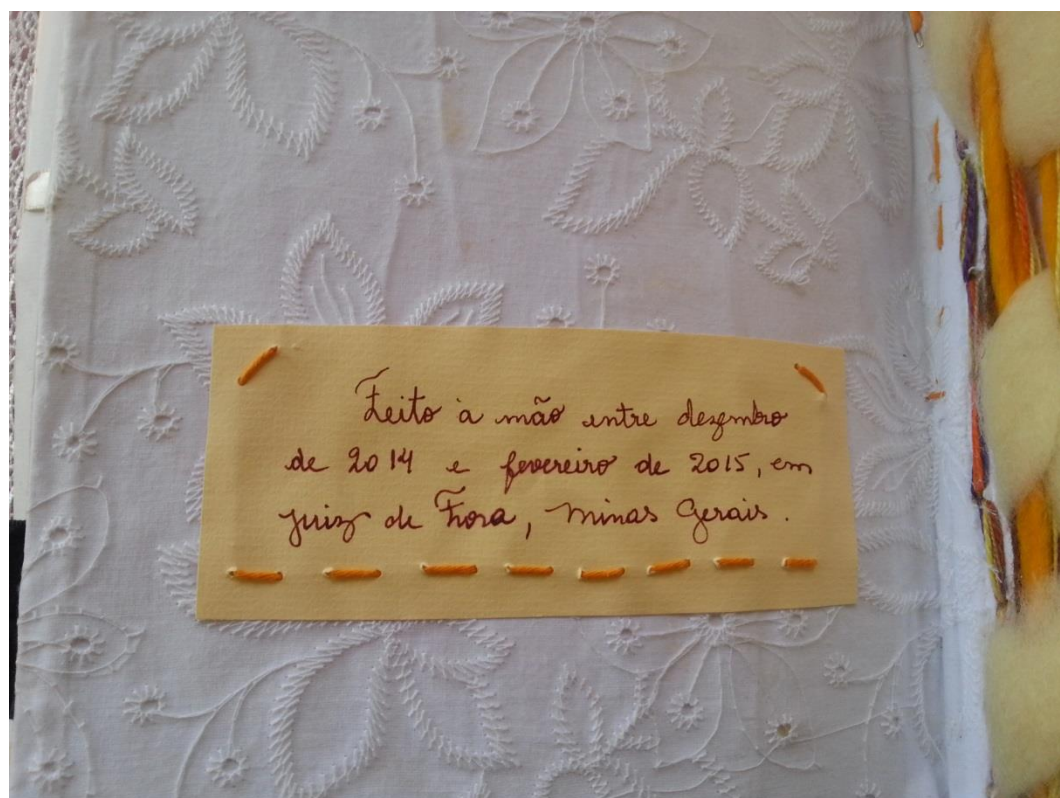 Feito à mão entre dezembro
de 2014 e fevereiro de 2015, em
Juiz de Fora, Minas Gerais.